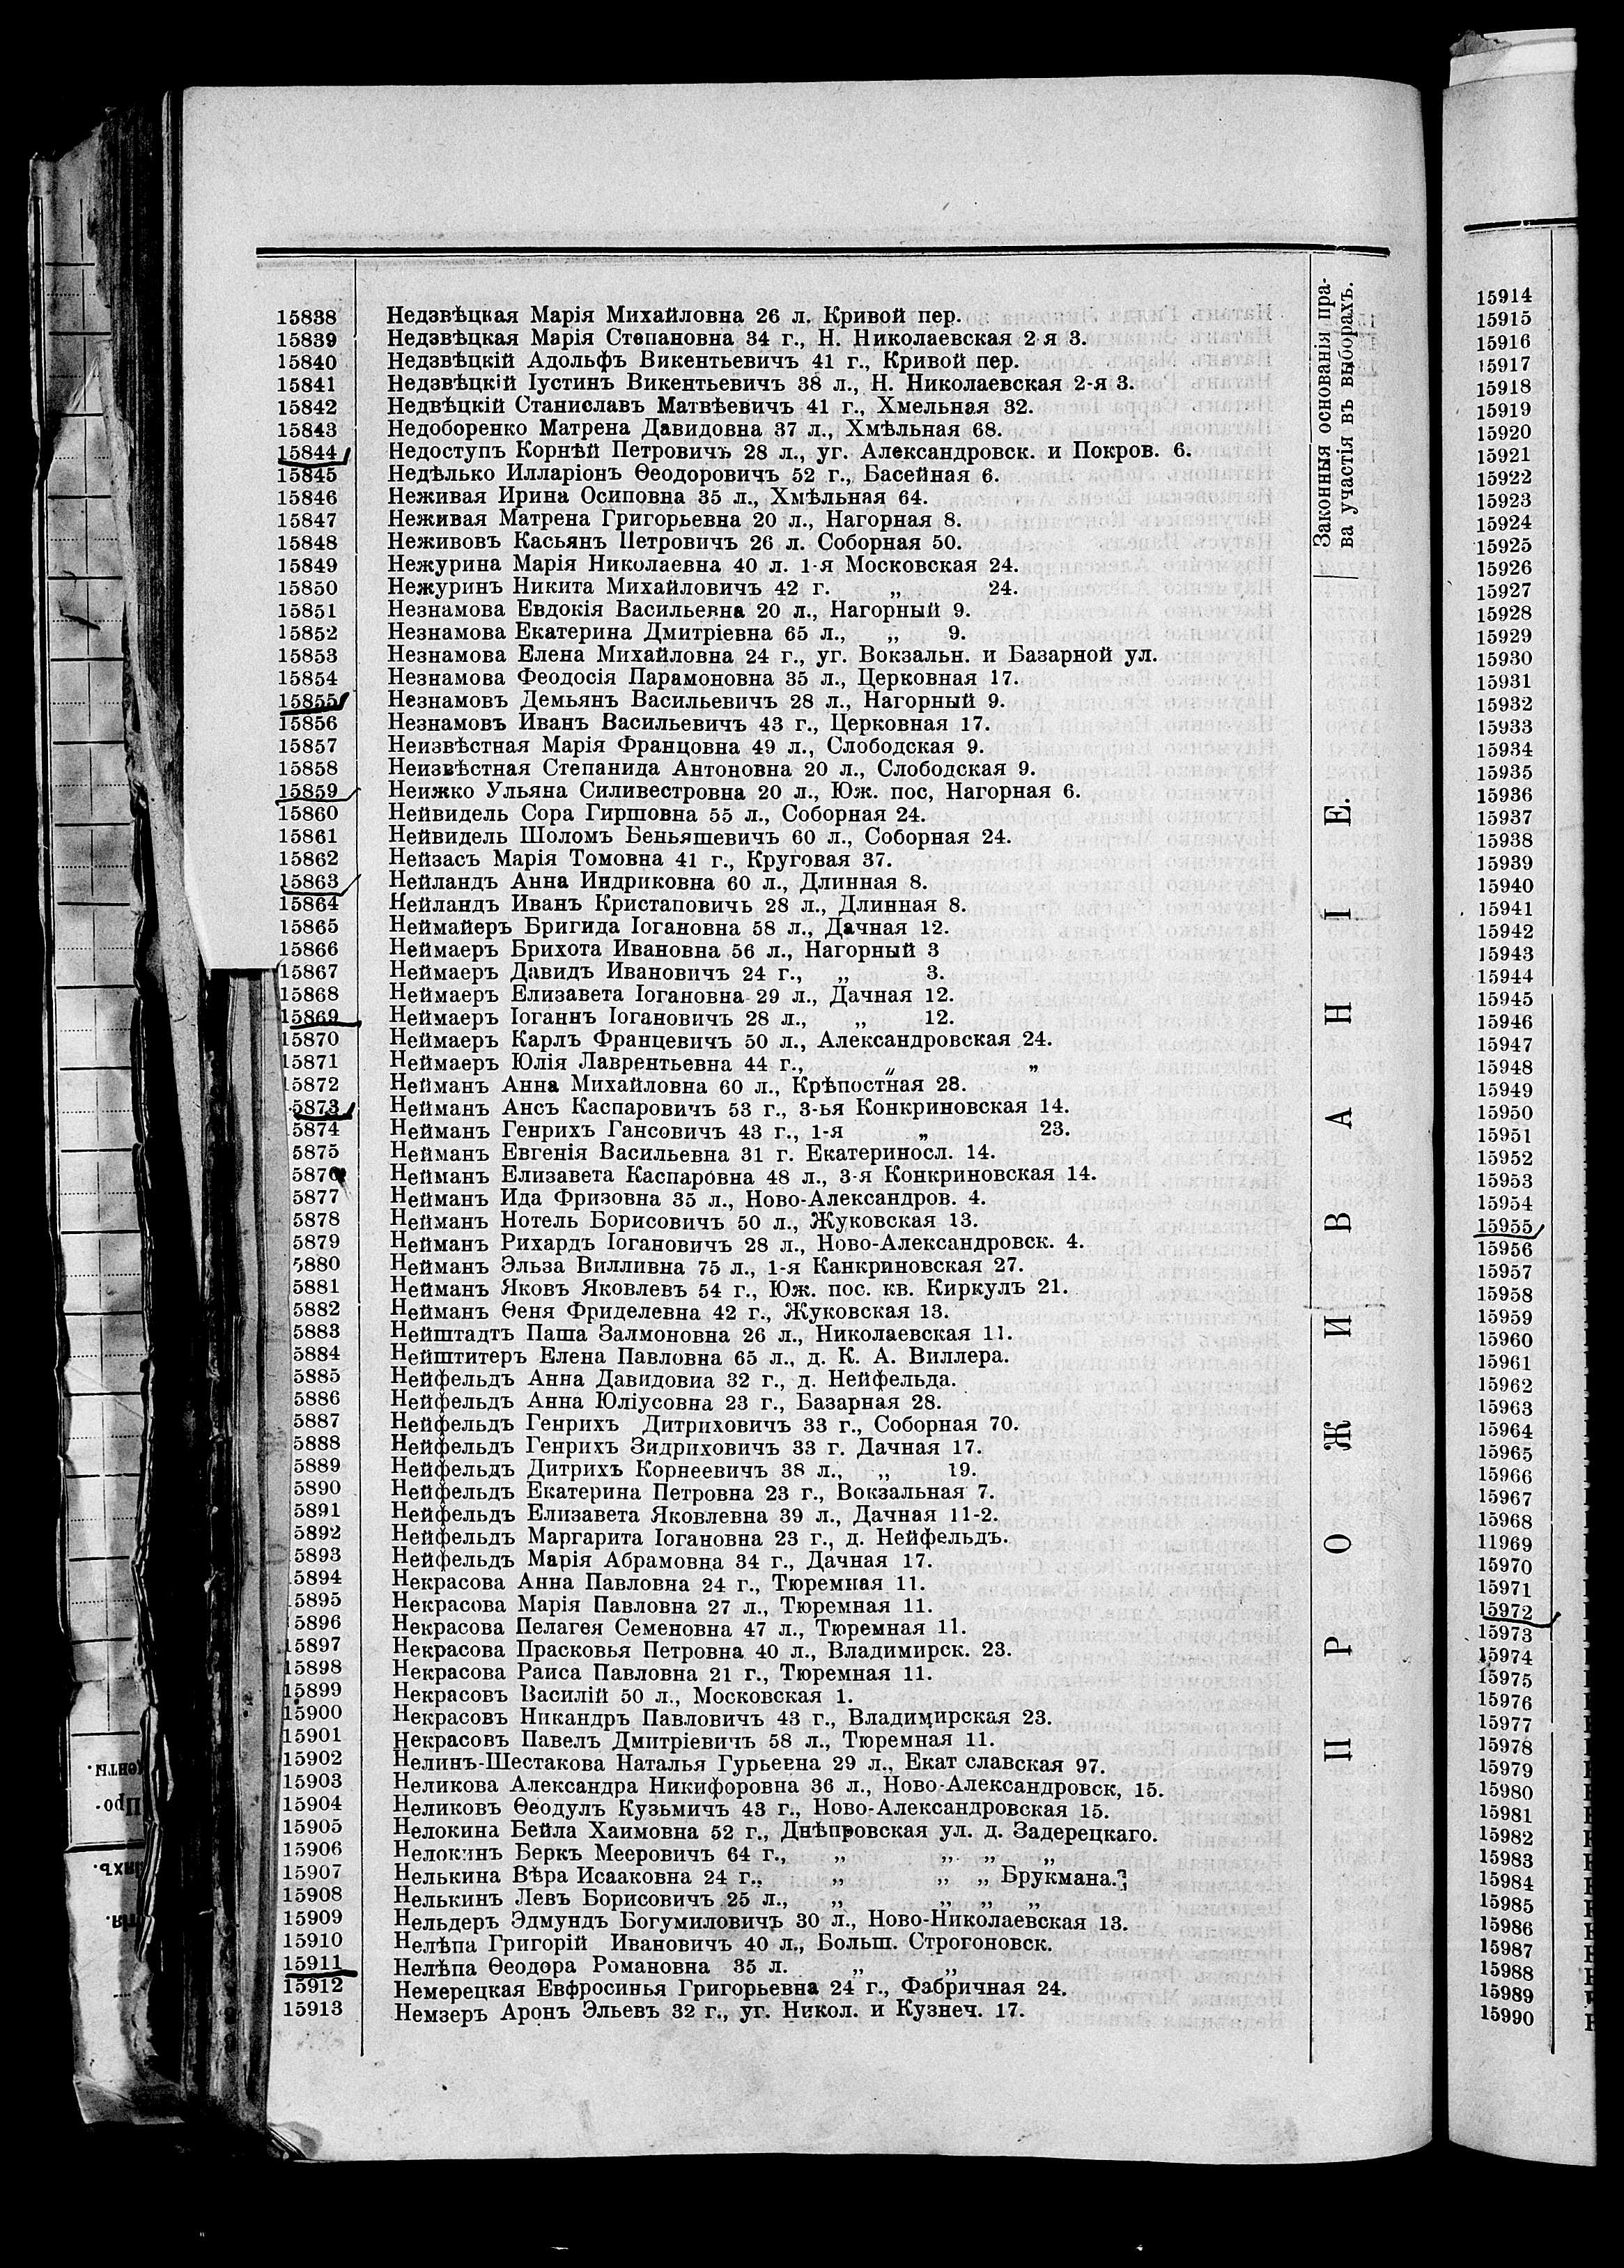 15838 Недзвѣцкая Марія Михайловна 26 л. Кривой пер.
15839 Недзвѣцкая Марія Степановна 34 г., Н. Николаевская 2 я 3.
15840 Недзвѣцкій Адольфъ Викентьевичъ 41 г., Кривой пер.
15841 Недзвѣцкій Іустинъ Викентьевичъ 38 л., Н. Николаевская 2-я 3.
15842 Недвѣцкій Станиславъ Матвѣевичъ 41 г., Хмельная 32.
15843 Недоборенко Матрена Давидовна 37 л., Хмѣльная 68.
15844 Недоступъ Корнѣй Петровичъ 28 л., уг. Александровск. и Покров. 6.
15845 Недѣлько Илларіонъ Ѳеодоровичъ 52 г., Басейная 6.
15846 Неживая Ирина Осиповна 35 л., Хмѣльная 64.
15847 Неживая Матрена Григорьевна 20 л., Нагорная 8.
15848 Неживовъ Касьянъ Петровичъ 26 л. Соборная 50.
15849 Нежурина Марія Николаевна 40 л. 1-я Московская 24.
15850 Нежуринъ Никита Михайловичъ 42 г. „ 24.
15851 Незнамова Евдокія Васильевна 20 л., Нагорный 9.
15852 Незнамова Екатерина Дмитріевна 65 л., „ 9.
15853 Незнамова Елена Михайловна 24 г., уг. Вокзальн. и Базарной ул.
15854 Незнамова Феодосія Парамоновна 35 л., Церковная 17.
15855 Незнамовъ Демьянъ Васильевичъ 28 л., Нагорный 9.
15856 Незнамовъ Иванъ Васильевичъ 43 г., Церковная 17.
15857 Неизвѣстная Марія Францовна 49 л., Слободская 9.
15858 Неизвѣстная Степанида Антоновна 20 л., Слободская 9.
15859 Неижко Ульяна Силивестровна 20 л., Юж. пос, Нагорная 6.
15860 Нейвидель Сора Гиршовна 55 л., Соборная 24.
15861 Нейвидель Шоломъ Беньяшевичъ 60 л., Соборная 24.
15862 Нейзасъ Марія Томовна 41 г., Круговая 37.
15863 Нейландъ Анна Индриковна 60 л., Длинная 8.
15864 Нейландъ Иванъ Кристаповичь 28 л., Длинная 8.
15865 Неймайеръ Бригида Іогановна 58 л., Дачная 12.
15866 Неймаеръ Брихота Ивановна 56 л., Нагорный 3
15867 Неймаеръ Давидъ Ивановичъ 24 г., „ 3.
15868 Неймаеръ Елизавета Іогановна 29 л., Дачная 12.
15869 Неймаеръ Іоганнъ Іогановичъ 28 л., „ 12.
15870 Неймаеръ Карлъ Францевичъ 50 л., Александровская 24.
15871 Неймаеръ Юлія Лаврентьевна 44 г., „ „
15872 Нейманъ Анна Михайловна 60 л., Крѣпостная 28.
5873 Нейманъ Ансъ Каспаровичъ 53 г., 3-ья Конкриновская 14.
15874 Нейманъ Генрихъ Гансовичъ 43 г., 1-я „ 23.
5875 Нейманъ Евгенія Васильевна 31 г. Екатериносл. 14.
5876 Нейманъ Елизавета Каспаровна 48 л., 3-я Конкриновская 14.
5877 Нейманъ Ида Фризовна 35 л., Ново-Александров. 4.
5878 Нейманъ Нотель Борисовичъ 50 л., Жуковская 13.
5879 Нейманъ Рихардъ Іогановичъ 28 л., Ново-Александровск. 4.
5880 Нейманъ Эльза Вилливна 75 л., 1-я Канкриновская 27.
5881 Нейманъ Яковъ Яковлевъ 54 г., Юж. пос. кв. Киркулъ 21.
5882 Нейманъ Ѳеня Фриделевна 42 г., Жуковская 13.
5883 Нейштадтъ Паша Залмоновна 26 л., Николаевская 11.
5884 Нейштитеръ Елена Павловна 65 л., д. К. А. Виллера.
5885 Нейфельдъ Анна Давидовна 32 г., д. Нейфельда.
5886 Нейфельдъ Анна Юліусовна 23 г., Базарная 28.
5887 Нейфельдъ Генрихъ Дитриховичъ 33 г., Соборная 70.
5888 Нейфельдъ Генрихъ Зидриховичъ 33 г. Дачная 17.
5889 Нейфельдъ Дитрихъ Корнеевичъ 38 л., „ 19.
5890 Нейфельдъ Екатерина Петровна 23 г., Вокзальная 7.
5891 Нейфельдъ Елизавета Яковлевна 39 л., Дачная 11-2.
5892 Нейфельдъ Маргарита Іогановна 23 г., д. Нейфельдъ.
5893 Нейфельдъ Марія Абрамовна 34 г., Дачная 17.
15894 Некрасова Анна Павловна 24 г., Тюремная 11.
15895 Некрасова Марія Павловна 27 л., Тюремная 11.
15896 Некрасова Пелагея Семеновна 47 л., Тюремная 11.
15897 Некрасова Прасковья Петровна 40 л., Владимирск. 23.
15898 Некрасова Раиса Павловна 21 г., Тюремная 11.
15899 Некрасовъ Василій 50 л., Московская 1.
15900 Некрасовъ Никандръ Павловичъ 43 г., Владимирская 23.
15901 Некрасовъ Павелъ Дмитріевичъ 58 л., Тюремная 11.
15902 Нелинъ-Шестакова Наталья Гурьевна 29 л., Екат славская 97.
15903 Неликова Александра Никифоровна 36 л., Ново-Александровск, 15.
15904 Неликовъ Ѳеодулъ Кузьмичъ 43 г., Ново-Александровская 15.
15905 Нелокина Бейла Хаимовна 52 г., Днѣпровская ул. д. Задерецкаго.
15906 Нелокинъ Беркъ Мееровичъ 64 г., „ „ „ „
15907 Нелькина Вѣра Исааковна 24 г., „ „ „ Брукмана.
15908 Нелькинъ Левъ Борисовичъ 25 л., „ „ „ „
15909 Нельдеръ Эдмундъ Богумиловичъ 30 л., Ново-Николаевская 13.
15910 Нелѣпа Григорій Ивановичъ 40 л., Больш. Строгоновск.
15911 Нелѣпа Ѳеодора Романовна 35 л. „ „
15912 Немерецкая Евфросинья Григорьевна 24 г., Фабричная 24.
15913 Немзеръ Аронъ Эльевъ 32 г., уг. Никол. и Кузнеч. 17.
Законныя основанія пра-
ва участія въ выборахъ.
ПРОЖИВАНІЕ.
15914
15915
15916
15917
15918
15919
15920
15921
15922
15923
15924
15925
15926
15927
15928
15929
15930
15931
15932
15933
15934
15935
15936
15937
15938
15939
15940
15941
15942
15943
15944
15945
15946
15947
15948
15949
15950
15951
15952
15953
15954
15955
15956
15957
15958
15959
15960
15961
15962
15963
15964
15965
15966
15967
15968
11969
15970
15971
15972
15973
15974
15975
15976
15977
15978
15979
15980
15981
15982
15983
15984
15985
15986
15987
15988
15989
15990